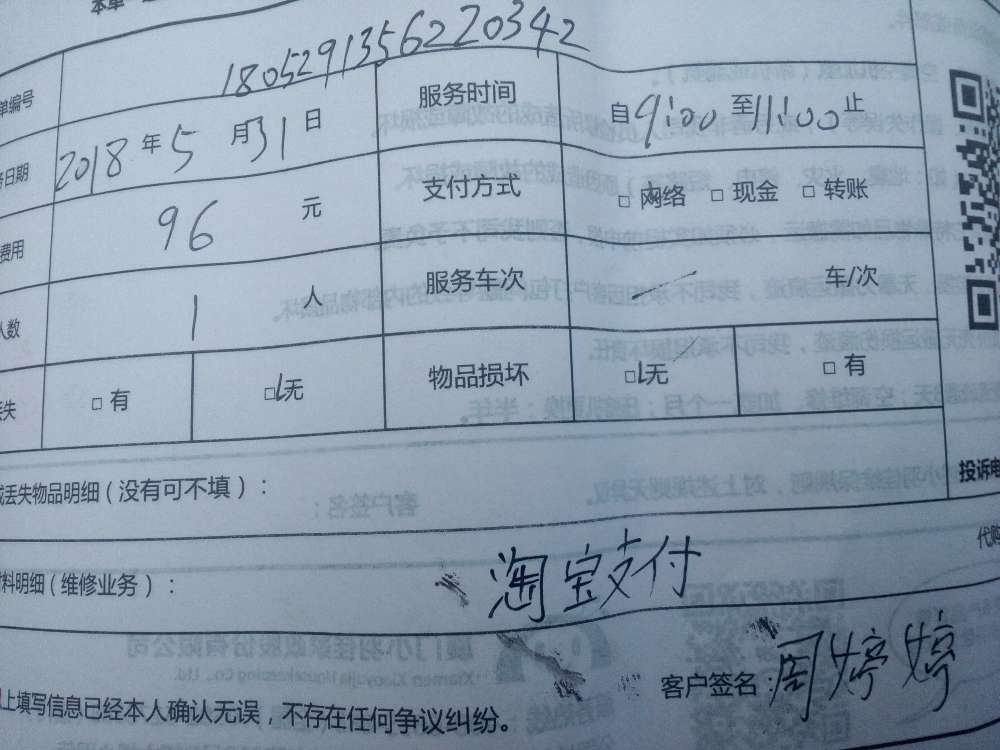 本单
单编号 1805291356220342 服务时间 自9:00至11:00止
务日期 2018年5月31日
费用 96元 支付方式 □ 网络 □ 现金 □ 转账
人数 1人 服务车次 / 车/次
丢失 □ 有 □无 物品损坏 □无 □ 有
或丢失物品明细（没有可不填）：
投诉电
材料明细（维修业务）： 淘宝支付
代购
以上填写信息已经本人确认无误，不存在任何争议纠纷。
客户签名：周婷婷